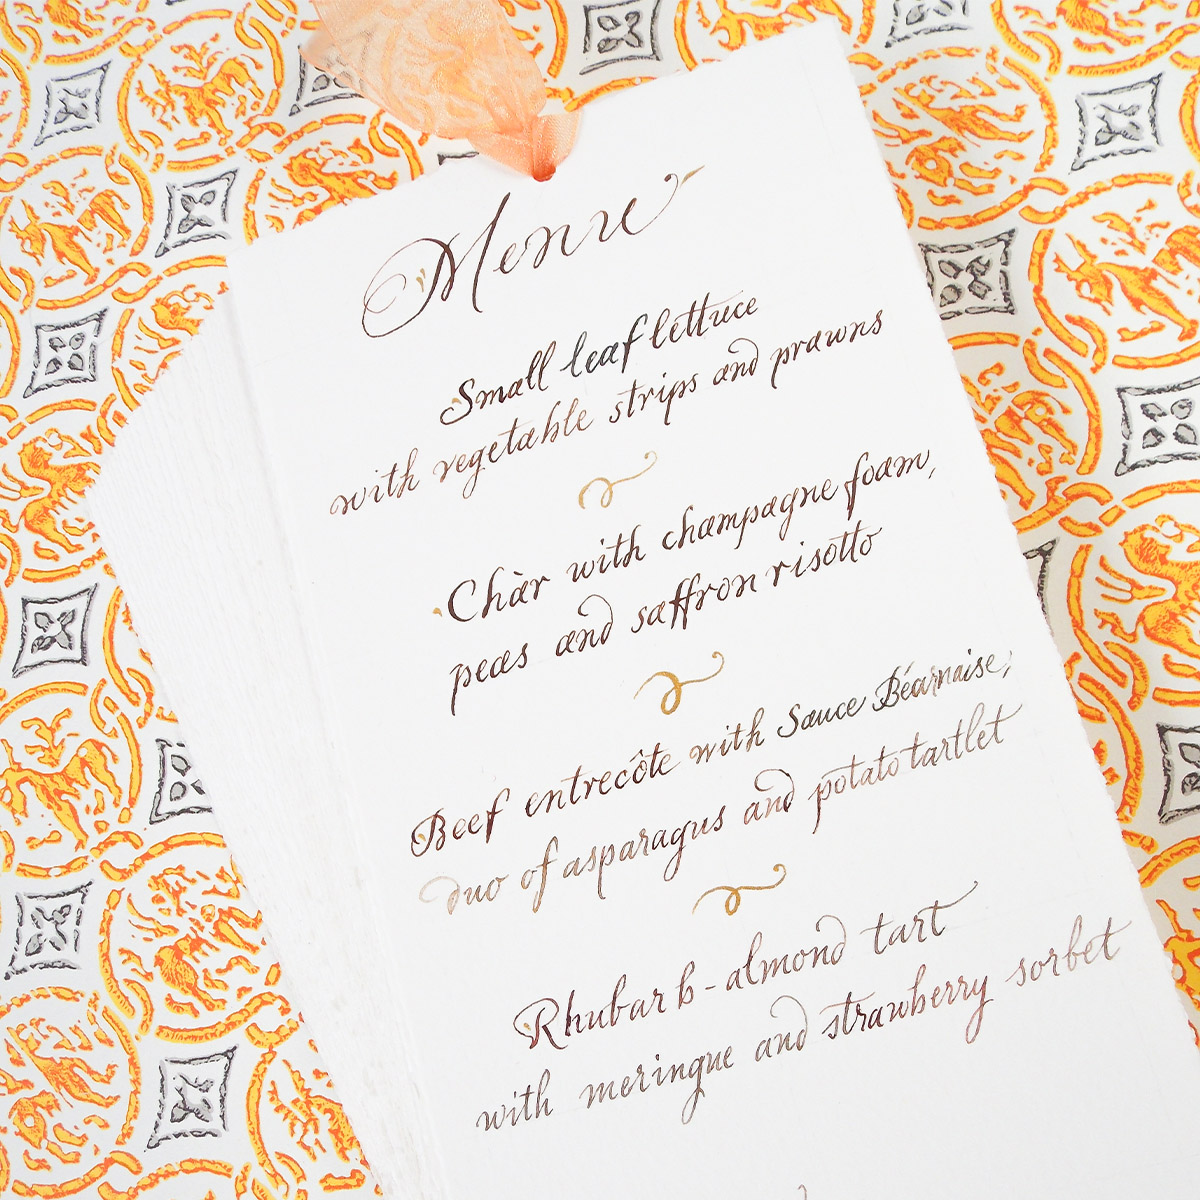 Menu
Small leaf lettuce
with vegetable strips and prawns
Chàr with champagne foam,
peas and saffron risotto
Beef entrecôte with Sauce Béarnaise,
duo of asparagus and potato tartlet
Rhubarb-almond tart
with meringue and strawberry sorbet